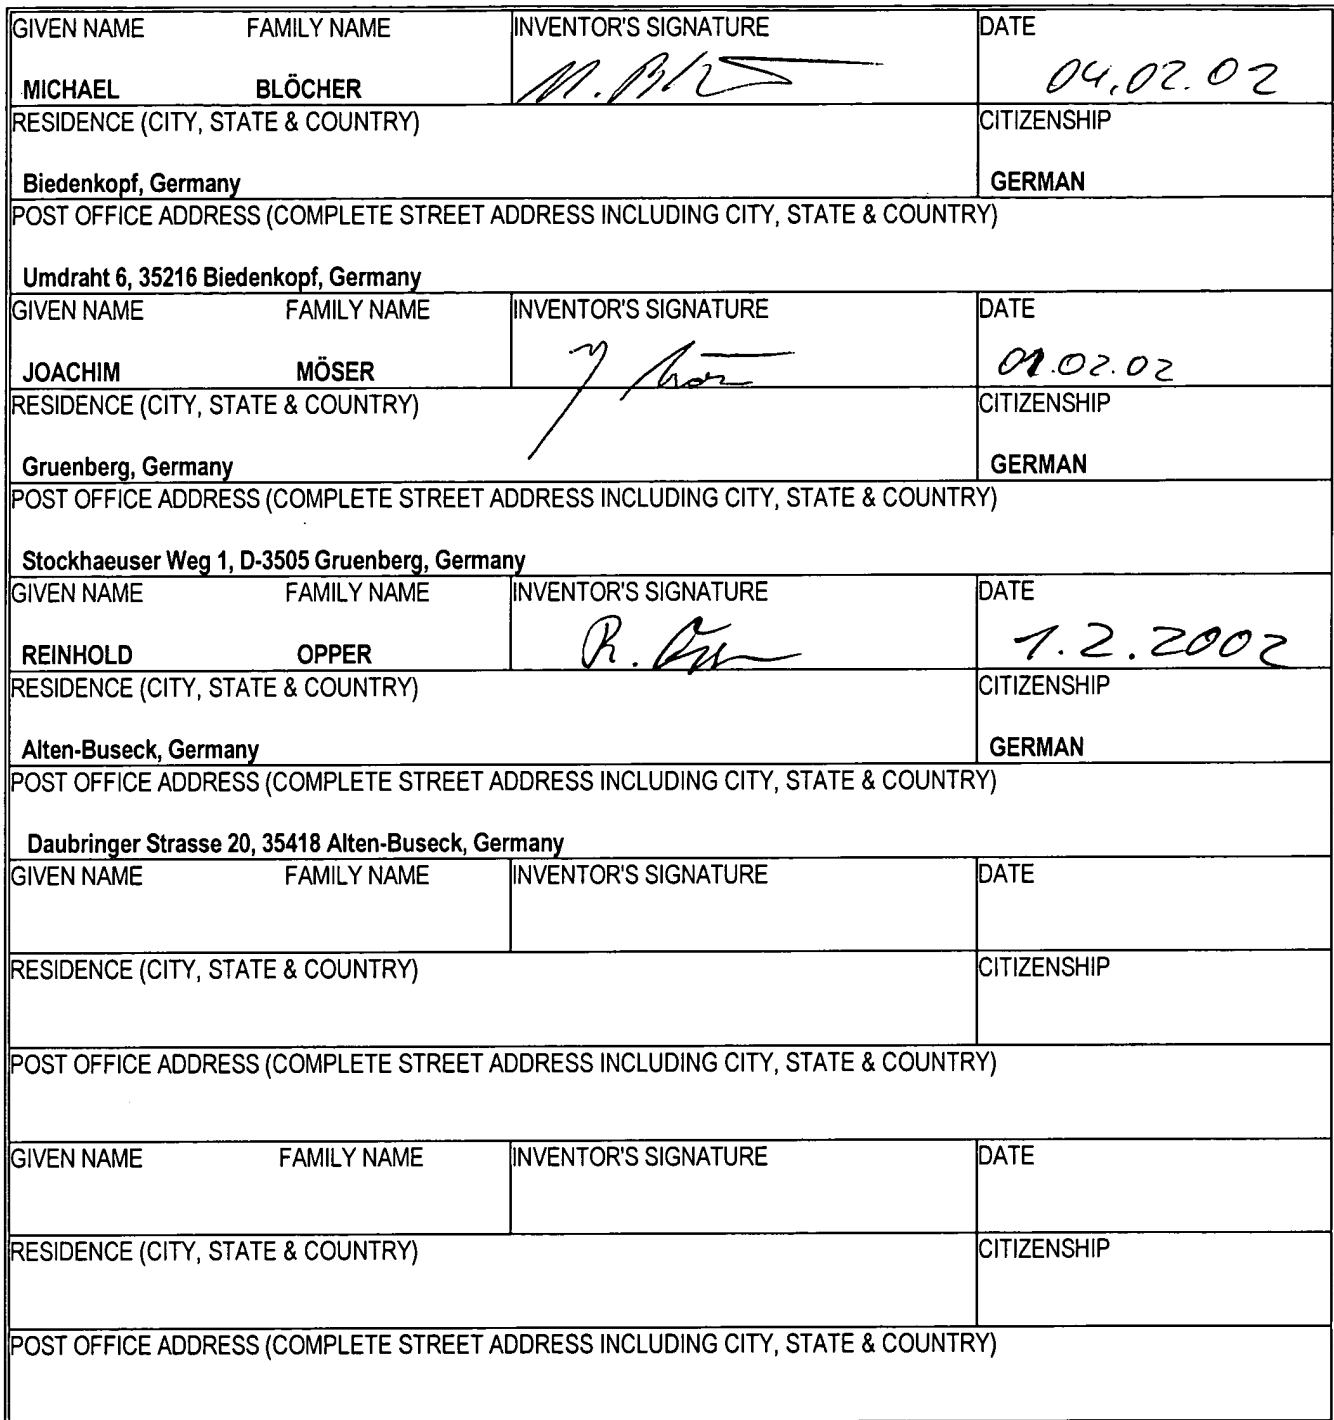 GIVEN NAME FAMILY NAME INVENTOR'S SIGNATURE DATE
MICHAEL BLÖCHER M. 04.02.02
RESIDENCE (CITY, STATE & COUNTRY) CITIZENSHIP
Biedenkopf, Germany GERMAN
POST OFFICE ADDRESS (COMPLETE STREET ADDRESS INCLUDING CITY, STATE & COUNTRY)
Umdraht 6, 35216 Biedenkopf, Germany
GIVEN NAME FAMILY NAME INVENTOR'S SIGNATURE DATE
JOACHIM MÖSER 01.02.02
RESIDENCE (CITY, STATE & COUNTRY) CITIZENSHIP
Gruenberg, Germany GERMAN
POST OFFICE ADDRESS (COMPLETE STREET ADDRESS INCLUDING CITY, STATE & COUNTRY)
Stockhaeuser Weg 1, D-3505 Gruenberg, Germany
GIVEN NAME FAMILY NAME INVENTOR'S SIGNATURE DATE
REINHOLD OPPER R. 1.2.2002
RESIDENCE (CITY, STATE & COUNTRY) CITIZENSHIP
Alten-Buseck, Germany GERMAN
POST OFFICE ADDRESS (COMPLETE STREET ADDRESS INCLUDING CITY, STATE & COUNTRY)
Daubringer Strasse 20, 35418 Alten-Buseck, Germany
GIVEN NAME FAMILY NAME INVENTOR'S SIGNATURE DATE
RESIDENCE (CITY, STATE & COUNTRY) CITIZENSHIP
POST OFFICE ADDRESS (COMPLETE STREET ADDRESS INCLUDING CITY, STATE & COUNTRY)
GIVEN NAME FAMILY NAME INVENTOR'S SIGNATURE DATE
RESIDENCE (CITY, STATE & COUNTRY) CITIZENSHIP
POST OFFICE ADDRESS (COMPLETE STREET ADDRESS INCLUDING CITY, STATE & COUNTRY)